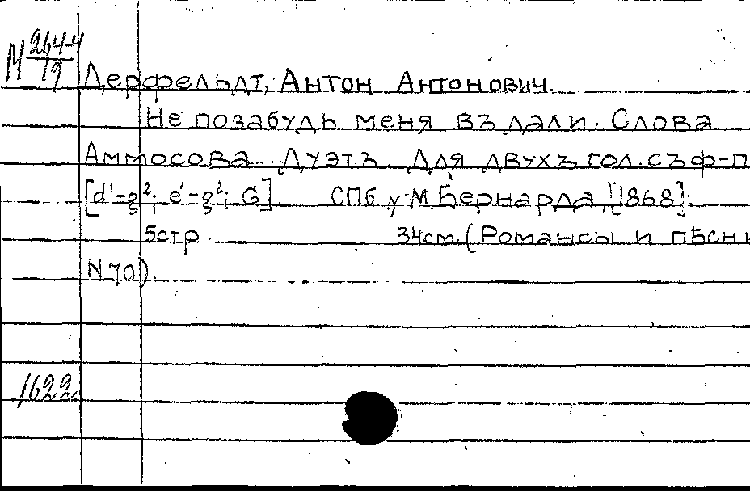 М 264-4
19
Дерфельдт, Антон Антонович.
Не позабудь меня въ дали. Слова
Аммосова. Дуэтъ. Для двухъ гол. съ ф-п
[d'-g²; e'-g²; G] СПб у М Бернарда, [1868].
5стр 34см. (Романсы и пѣсни
N 70).
1622